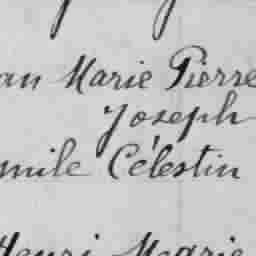 an Marie Pierre
Joseph
mile Célestin
Henri Marie